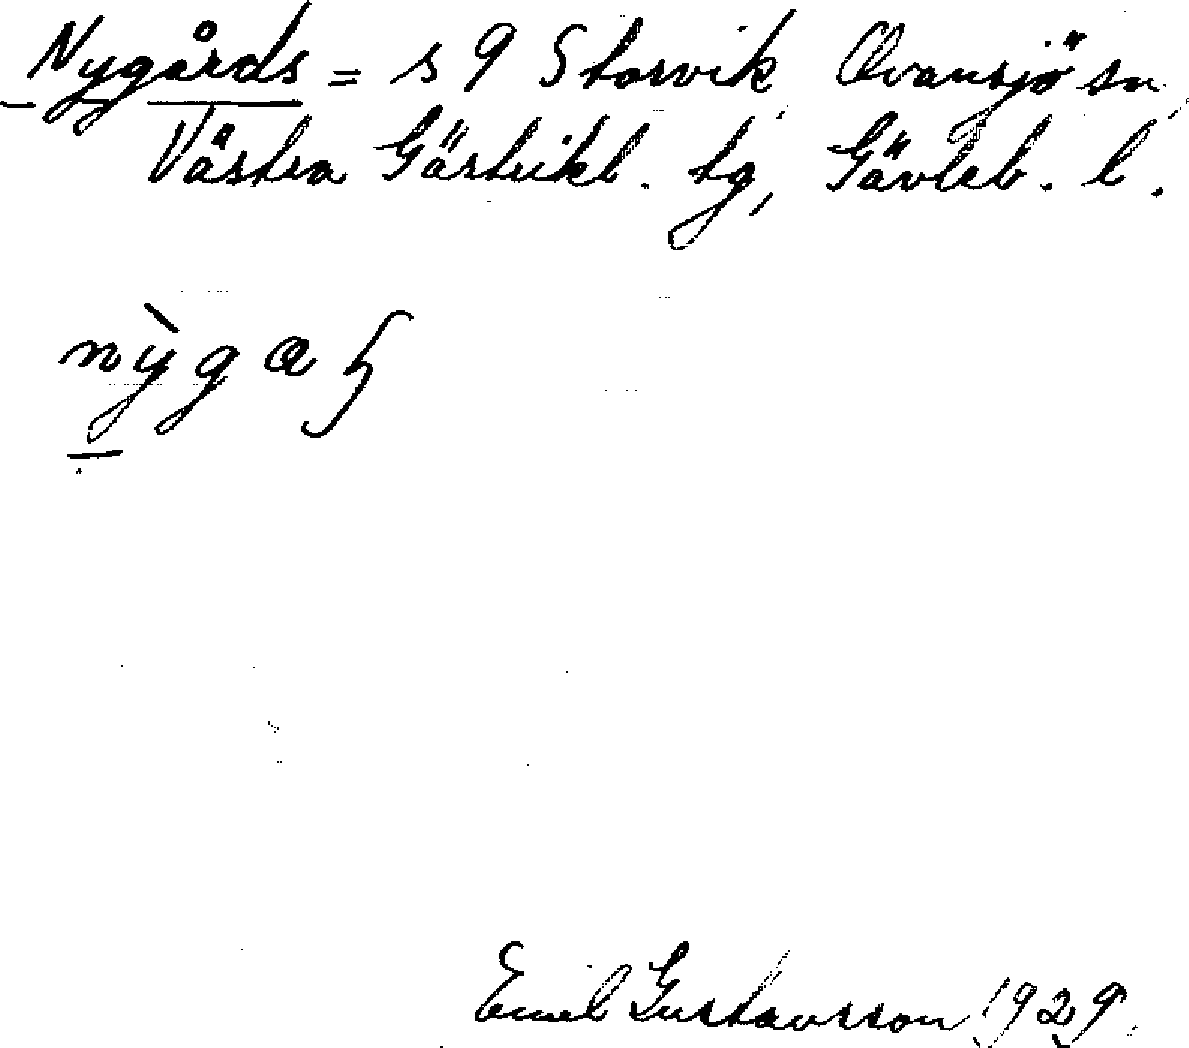 Nygårds = s 9 Storvik, Ovansjö sn,
Västra Gästrikl. tg, Gävleb. l.
nỳgaꞕ
Emil Gustavsson 1929.